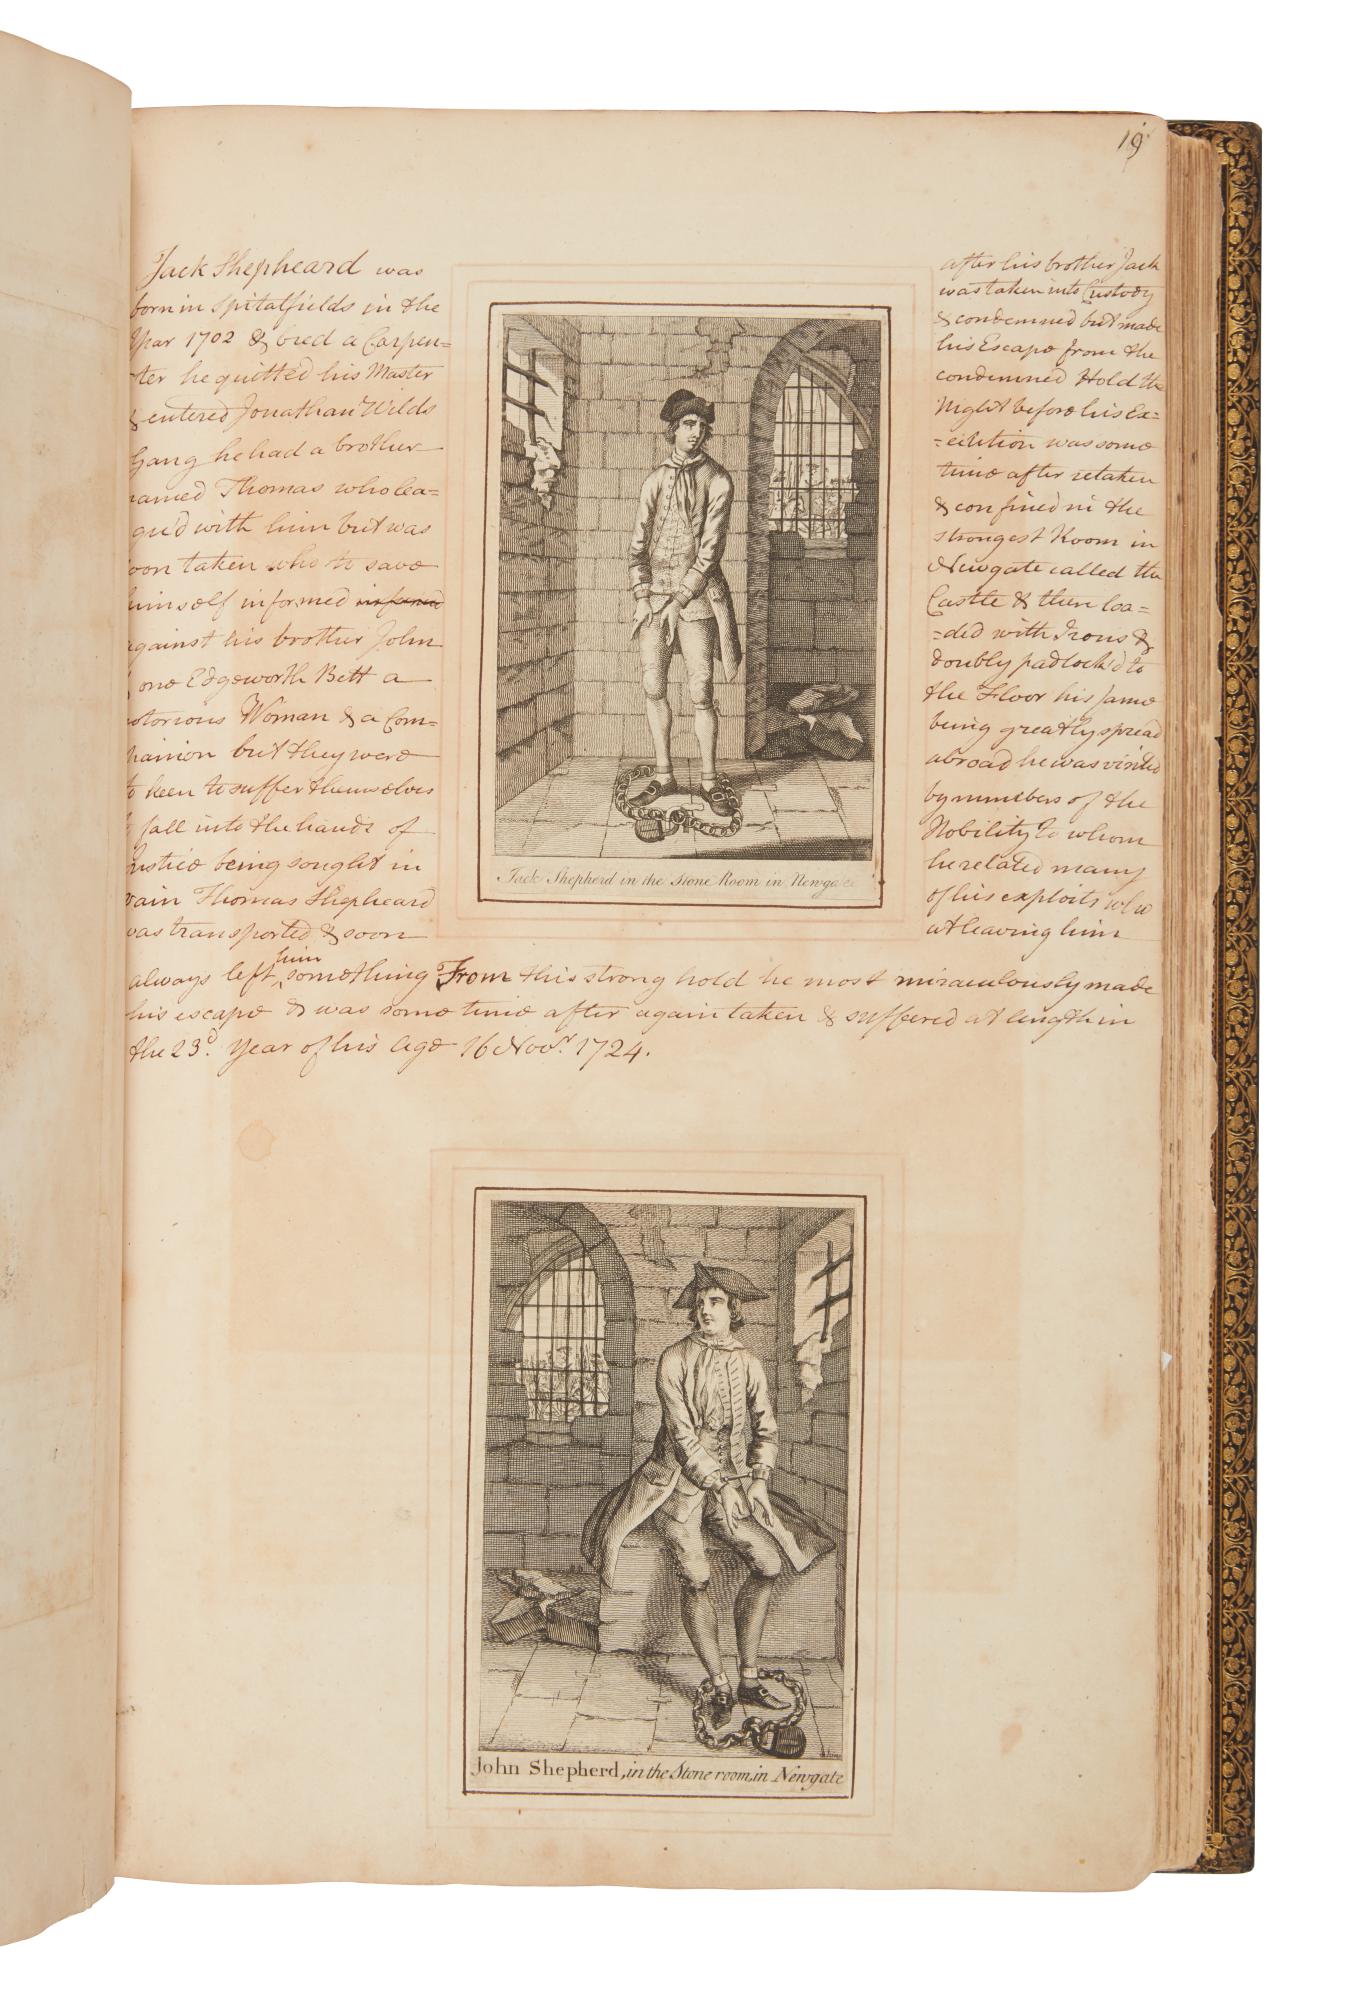 19
Jack Shepheard was
born in Spitalfields in the
Year 1702 & bred a Carpen=
ter he quitted his Master
& entered Jonathan Wilds
Gang he had a brother
named Thomas who lea=
gu'd with him but was
soon taken who to save
himself informed informed
against his brother John
& one Edgeworth Bett a
notorious Woman & a Com=
panion but they were
to keen to suffer themselves
to fall into the hands of
Justice being sought in
vain Thomas Shepheard
was transported & soon
after his brother Jack
was taken into Custody
& condemned but made
his Escape from the
condemned Hold the
Night before his Ex=
=ecution was some
time after retaken
& confined in the
strongest Room in
Newgate called the
Castle & then loa=
=ded with Irons &
doubly padlock'd to
the Floor his fame
being greatly spread
abroad he was visited
by numbers of the
Nobility to whom
he related many
of his exploits who
at leaving him
always left him something From this strong hold he most miraculously made
his escape & was some time after again taken & suffered at length in
the 23d. Year of his Age 16 Novr. 1724.
Jack Shepherd in the Stone Room in Newgate
John Shepherd, in the Stone room, in Newgate